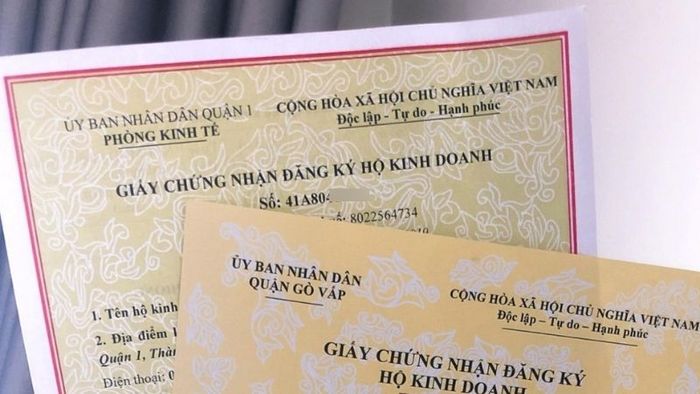 ỦY BAN NHÂN DÂN QUẬN 1
PHÒNG KINH TẾ
CỘNG HÒA XÃ HỘI CHỦ NGHĨA VIỆT NAM
Độc lập - Tự do - Hạnh phúc
GIẤY CHỨNG NHẬN ĐĂNG KÝ HỘ KINH DOANH
Số: 41A80
số: 8022564734
1. Tên hộ kinh
2. Địa điểm
Quận 1, Thàn
Điện thoại: 0
ỦY BAN NHÂN DÂN
QUẬN GÒ VẤP
CỘNG HÒA XÃ HỘI CHỦ NGHĨA VIỆT NAM
Độc lập – Tự do – Hạnh phúc
GIẤY CHỨNG NHẬN ĐĂNG KÝ
HỘ KINH DOANH